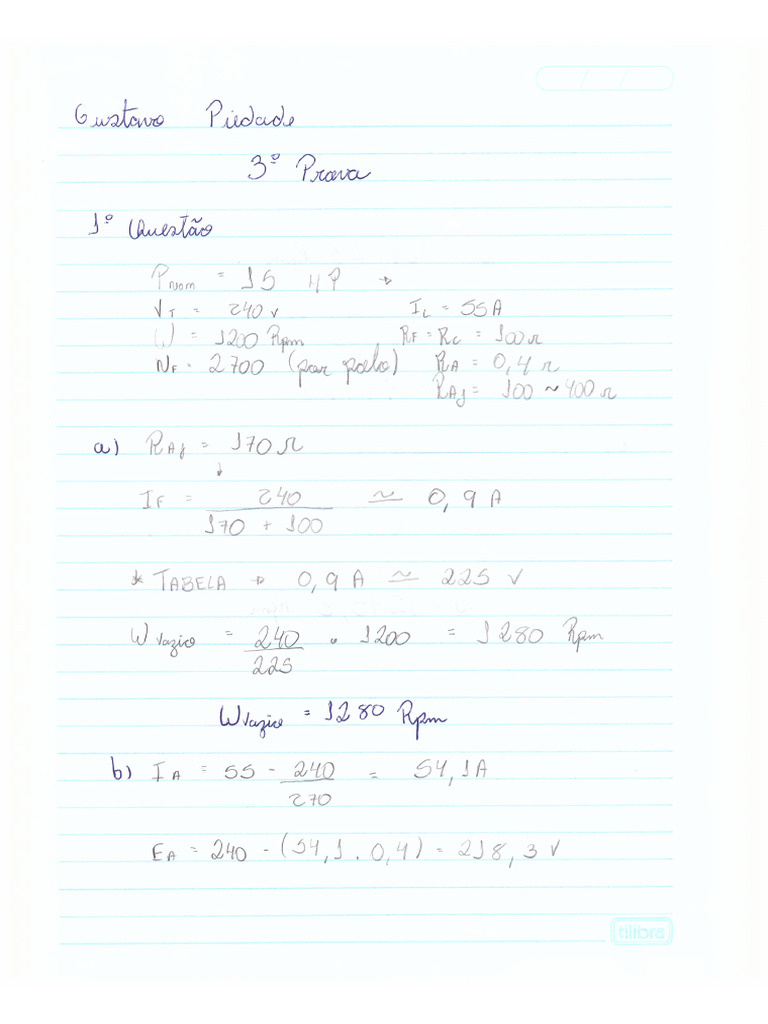 Gustavo Piedade
3º Prova
1º Questão
PNom = 15 HP →
VT = 240 V IL = 55 A
W = 1200 Rpm RF = RC = 100 Ω
NF = 2700 (por polo) RA = 0,4 Ω
RAj = 100 ~ 400 Ω
a) RAj = 170 Ω
↓
IF = 240 / 170 + 100 ≃ 0,9 A
* TABELA → 0,9 A ≃ 225 V
Wvazio = 240 / 225 . 1200 = 1280 Rpm
Wvazio = 1280 Rpm
b) IA = 55 - 240 / 270 = 54,1A
EA = 240 - (54,1 . 0,4) = 218,3 V
tilibra